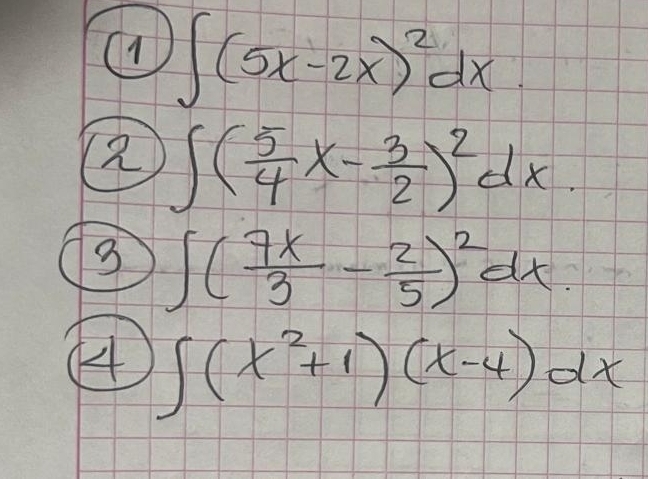 ① ∫(5x-2x)²dx.
② ∫(5/4 x - 3/2)²dx.
③ ∫(7x/3 - 2/5)²dx.
④ ∫(x²+1)(x-4)dx